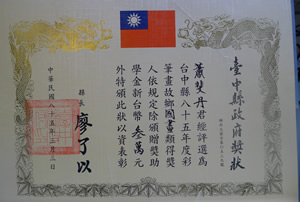 臺中縣政府獎狀
蕭斐丹君經評選為
台中縣八十五年度彩
筆畫故鄉國畫類得獎
人依規定除頒贈獎助
學金新台幣叁萬元
外特頒此狀以資表彰
縣長 廖了以
中華民國八十五年三月三日